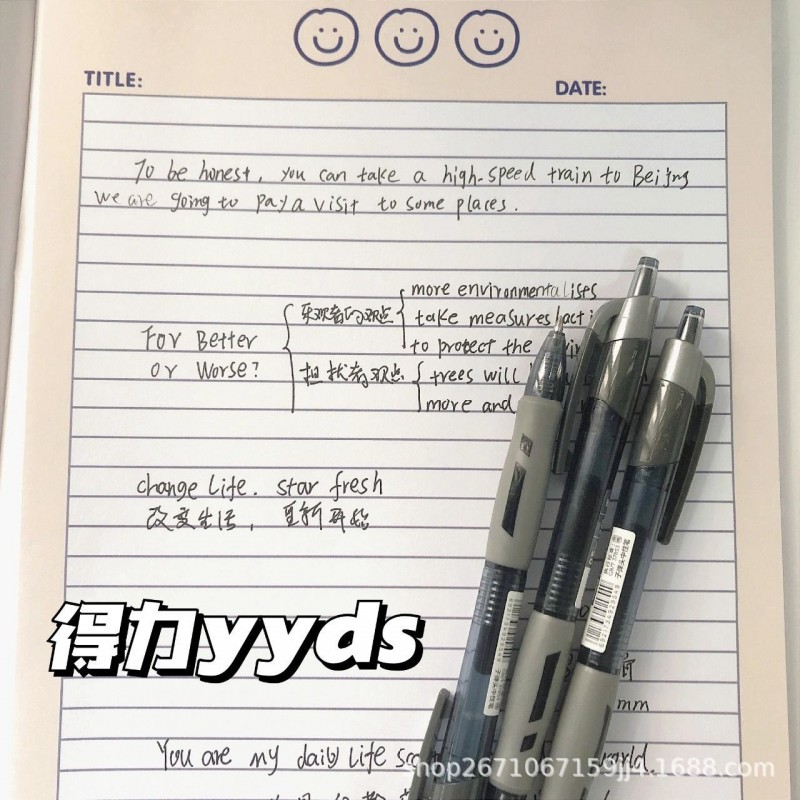 TITLE:
DATE:
To be honest, you can take a high-speed train to Beijing
we are going to pay a visit to some places.
more environmentalises
乐观者的观点
take measures/acti
For Better
to protect the
or Worse?
担忧者观点
trees will
more and
change life. star fresh
改变生活，重新开始
得力yyds
mm
You are my daily life
world.
shop2671067159jj4.1688.com